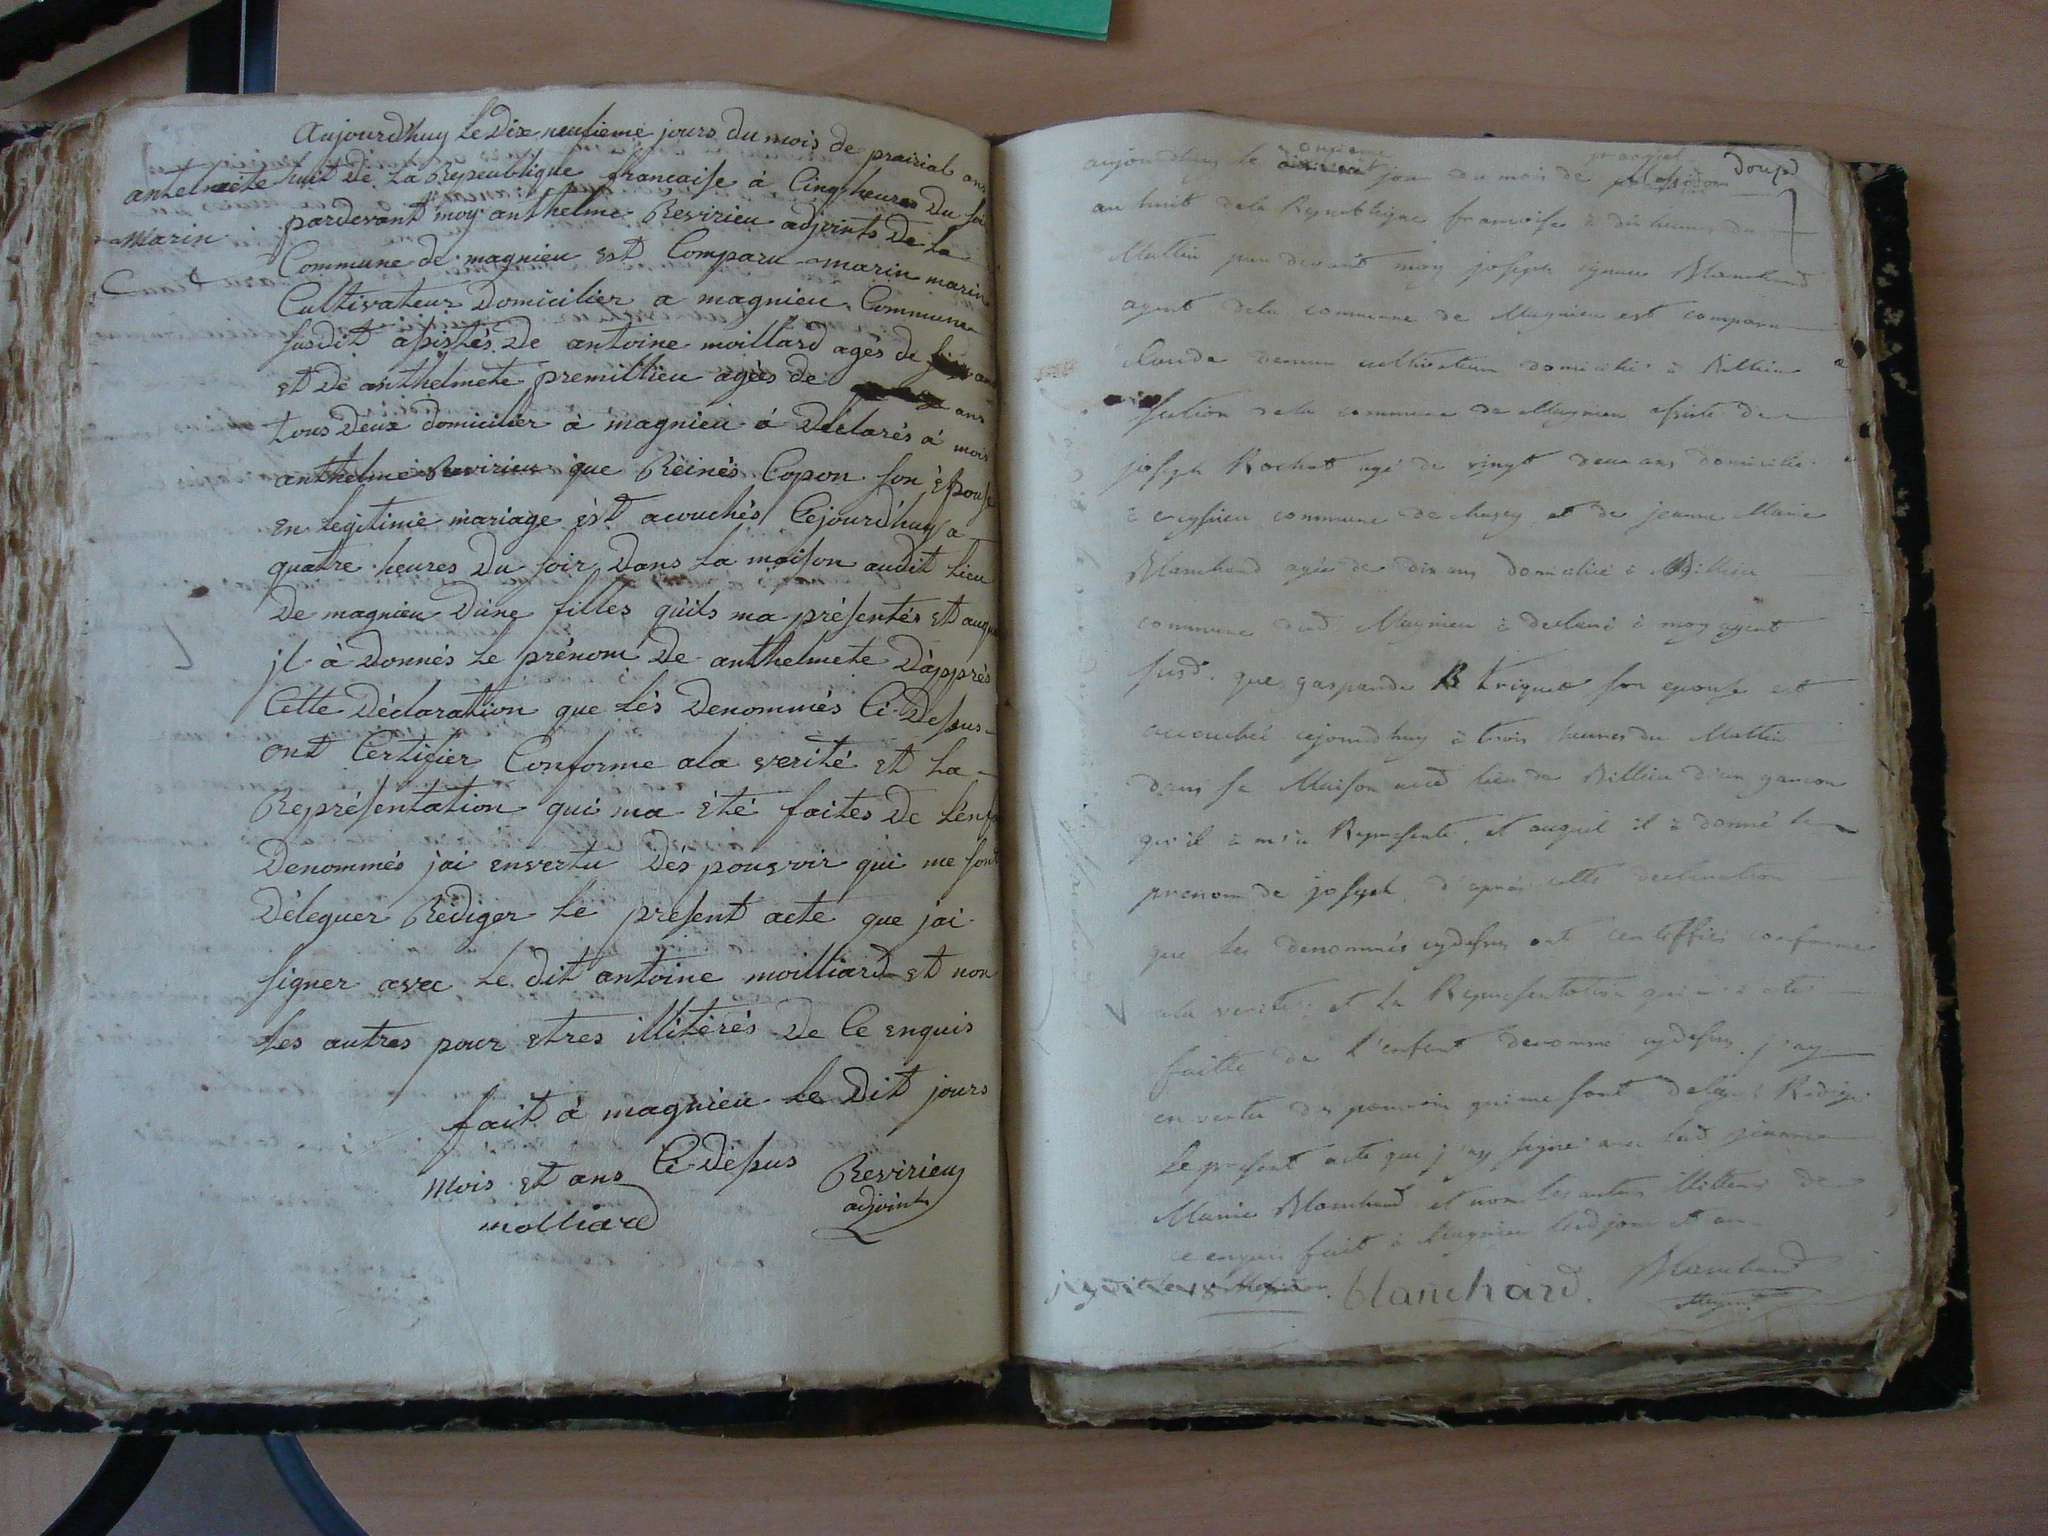 Aujourd'huy le Dix neufieme jours du mois de prairial ans
huit De La Republique francaise à Cinq heures Du soir
antelmete
marin
pardevant moy anthelme Revirieu adjoints De La
Commune de magnieu est Comparu marin marin
Cultivateur Domicilier a magnieu Commune
susdit asistés De antoine moillard agés de ans
et De anthelmete premillieu agées de ans
tous Deux domicilier à magnieu à Déclarés à moi
anthelme Revirieu que Reinés Copon son épouse
en legitime mariage est acouchés Cejourd'huy a
quatre heures Du soir Dans La maison audit Lieu
De magnieu Dune filles quils ma présentés et auquel
jl à Donnés Le prénom De anthelmete Dapprès
Cette Déclaration que Lés Denommés Ci-Desus
ont Certifier Conforme ala verité et La
Représentation qui ma été faites De Lenfant
Denommés jai envertu Des pouvoir qui me sont
Déleguer Rédiger Le present acte que jai
signer avec Le dit antoine moilliard et non
Les autres pour etres illitérés De Ce enquis
fait à magnieu Le Dit jours
mois et ans Ci-Désus
Revirieu
adjoint
molliard
aujourdhuy le onzieme jour du mois de
an huit dela Republique francoise à dix heures du
Mattin par devant moy joseph ignace Blanchard
agent dela commune de Magnieu est comparu
Claude cultivateur domicilié à Billieu
section dela commune de Magnieu assisté de
joseph Rochat agé de vingt deux ans domicilié
à crysieu commune de chasey et de jeanne Marie
Blanchard agée de dix ans domicilié à Billieu
commune dud Magnieu à declaré à moy agent
susd. que gasparde Triquet son epouse est
accouchée cejourdhuy à trois heures du Mattin
dans sa Maison aud lieu de Billieu d'un garcon
qu'il à m'a Representé et auquel il à donné le
prenom de joseph d'apres cette declaration
que les denommés cydesus ont certiffiés conforme
ala verité et la Representation qui m'à eté
faitte de l'enfant denommé cydesus j'ay
en vertu des pouvoirs qui me sont delegués Redigé
le present acte que j'ay signé avec lad jeanne
Marie Blanchard et non les autres illiterés de
ce enquis fait à Magnieu lesd jour et an
blanchard. Blanchard